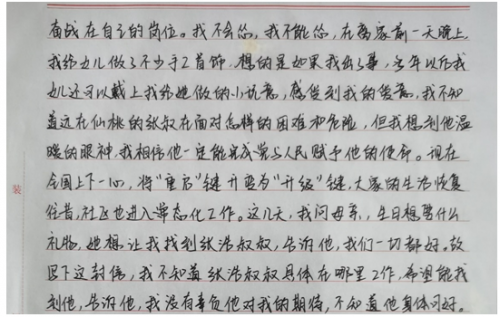 奋战在自己的岗位。我不会怂，我不能怂，在离家前一天晚上
我给女儿做了不少手工首饰，想的是如果我出了事，多年以后我
女儿还可以戴上我给她做的小玩意，感受到我的爱意，我不知
道远在仙桃的张叔在面对怎样的困难和危险，但我想到他温
暖的眼神，我相信他一定能完成党与人民赋予他的使命。现在
全国上下一心，将“重启”键升变为“升级”键，大家的生活恢复
往昔，社区也进入常态化工作。这几天，我问母亲，生日想要什么
礼物，她想让我找到张浩叔叔，告诉他，我们一切都好。故
写下这封信，我不知道张浩叔叔具体在哪里工作，希望能找
到他，告诉他，我没有辜负他对我的期待，不知道他身体可好。
装